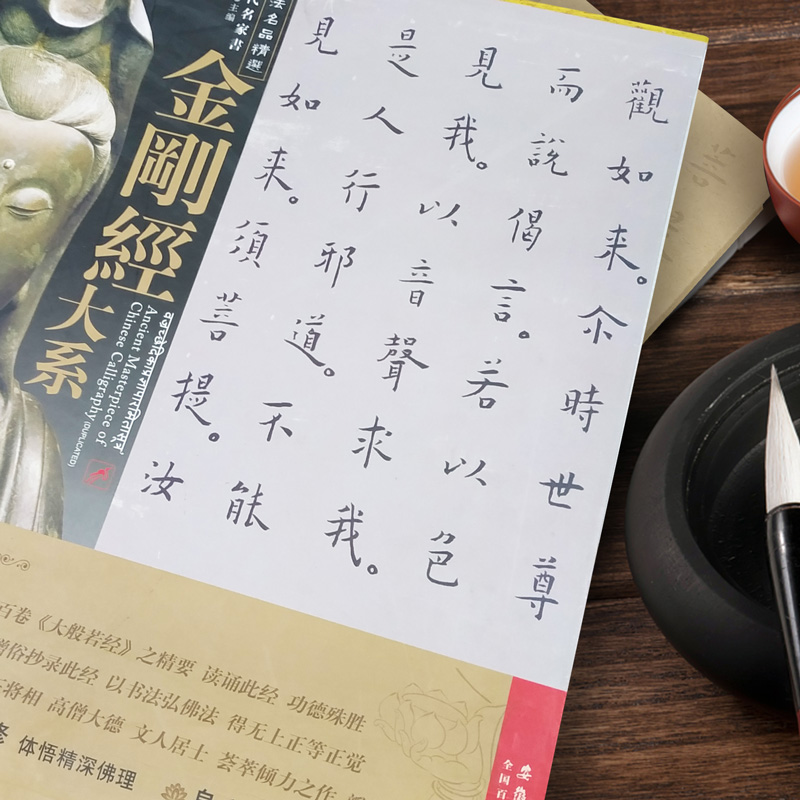 觀如来。尒時世尊
而說偈言。若以色
見我。以音聲求我。
是人行邪道。不能
見如来。須菩提。汝
法名品精選
代名家書
主编
金剛經大系
Ancient Masterpiece of
Chinese Calligraphy (DUPLICATED)
百卷《大般若经》之精要 读诵此经 功德殊胜
僧俗抄录此经 以书法弘佛法 得无上正等正觉
将相 高僧大德 文人居士 荟萃倾力之作
修 体悟精深佛理
全国百